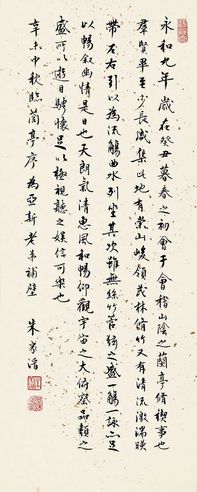 永和九年歲在癸丑暮春之初會于會稽山陰之蘭亭脩稧事也
群賢畢至少長咸集此地有崇山峻領茂林脩竹又有清流激湍暎
帶左右引以為流觴曲水列坐其次雖無絲竹管絃之盛一觴一詠亦足
以暢敘幽情是日也天朗氣清惠風和暢仰觀宇宙之大俯察品類之
盛所以遊目騁懷足以極視聽之娛信可樂也
辛未中秋臨蘭亭序為亞斯老弟補壁
朱家溍